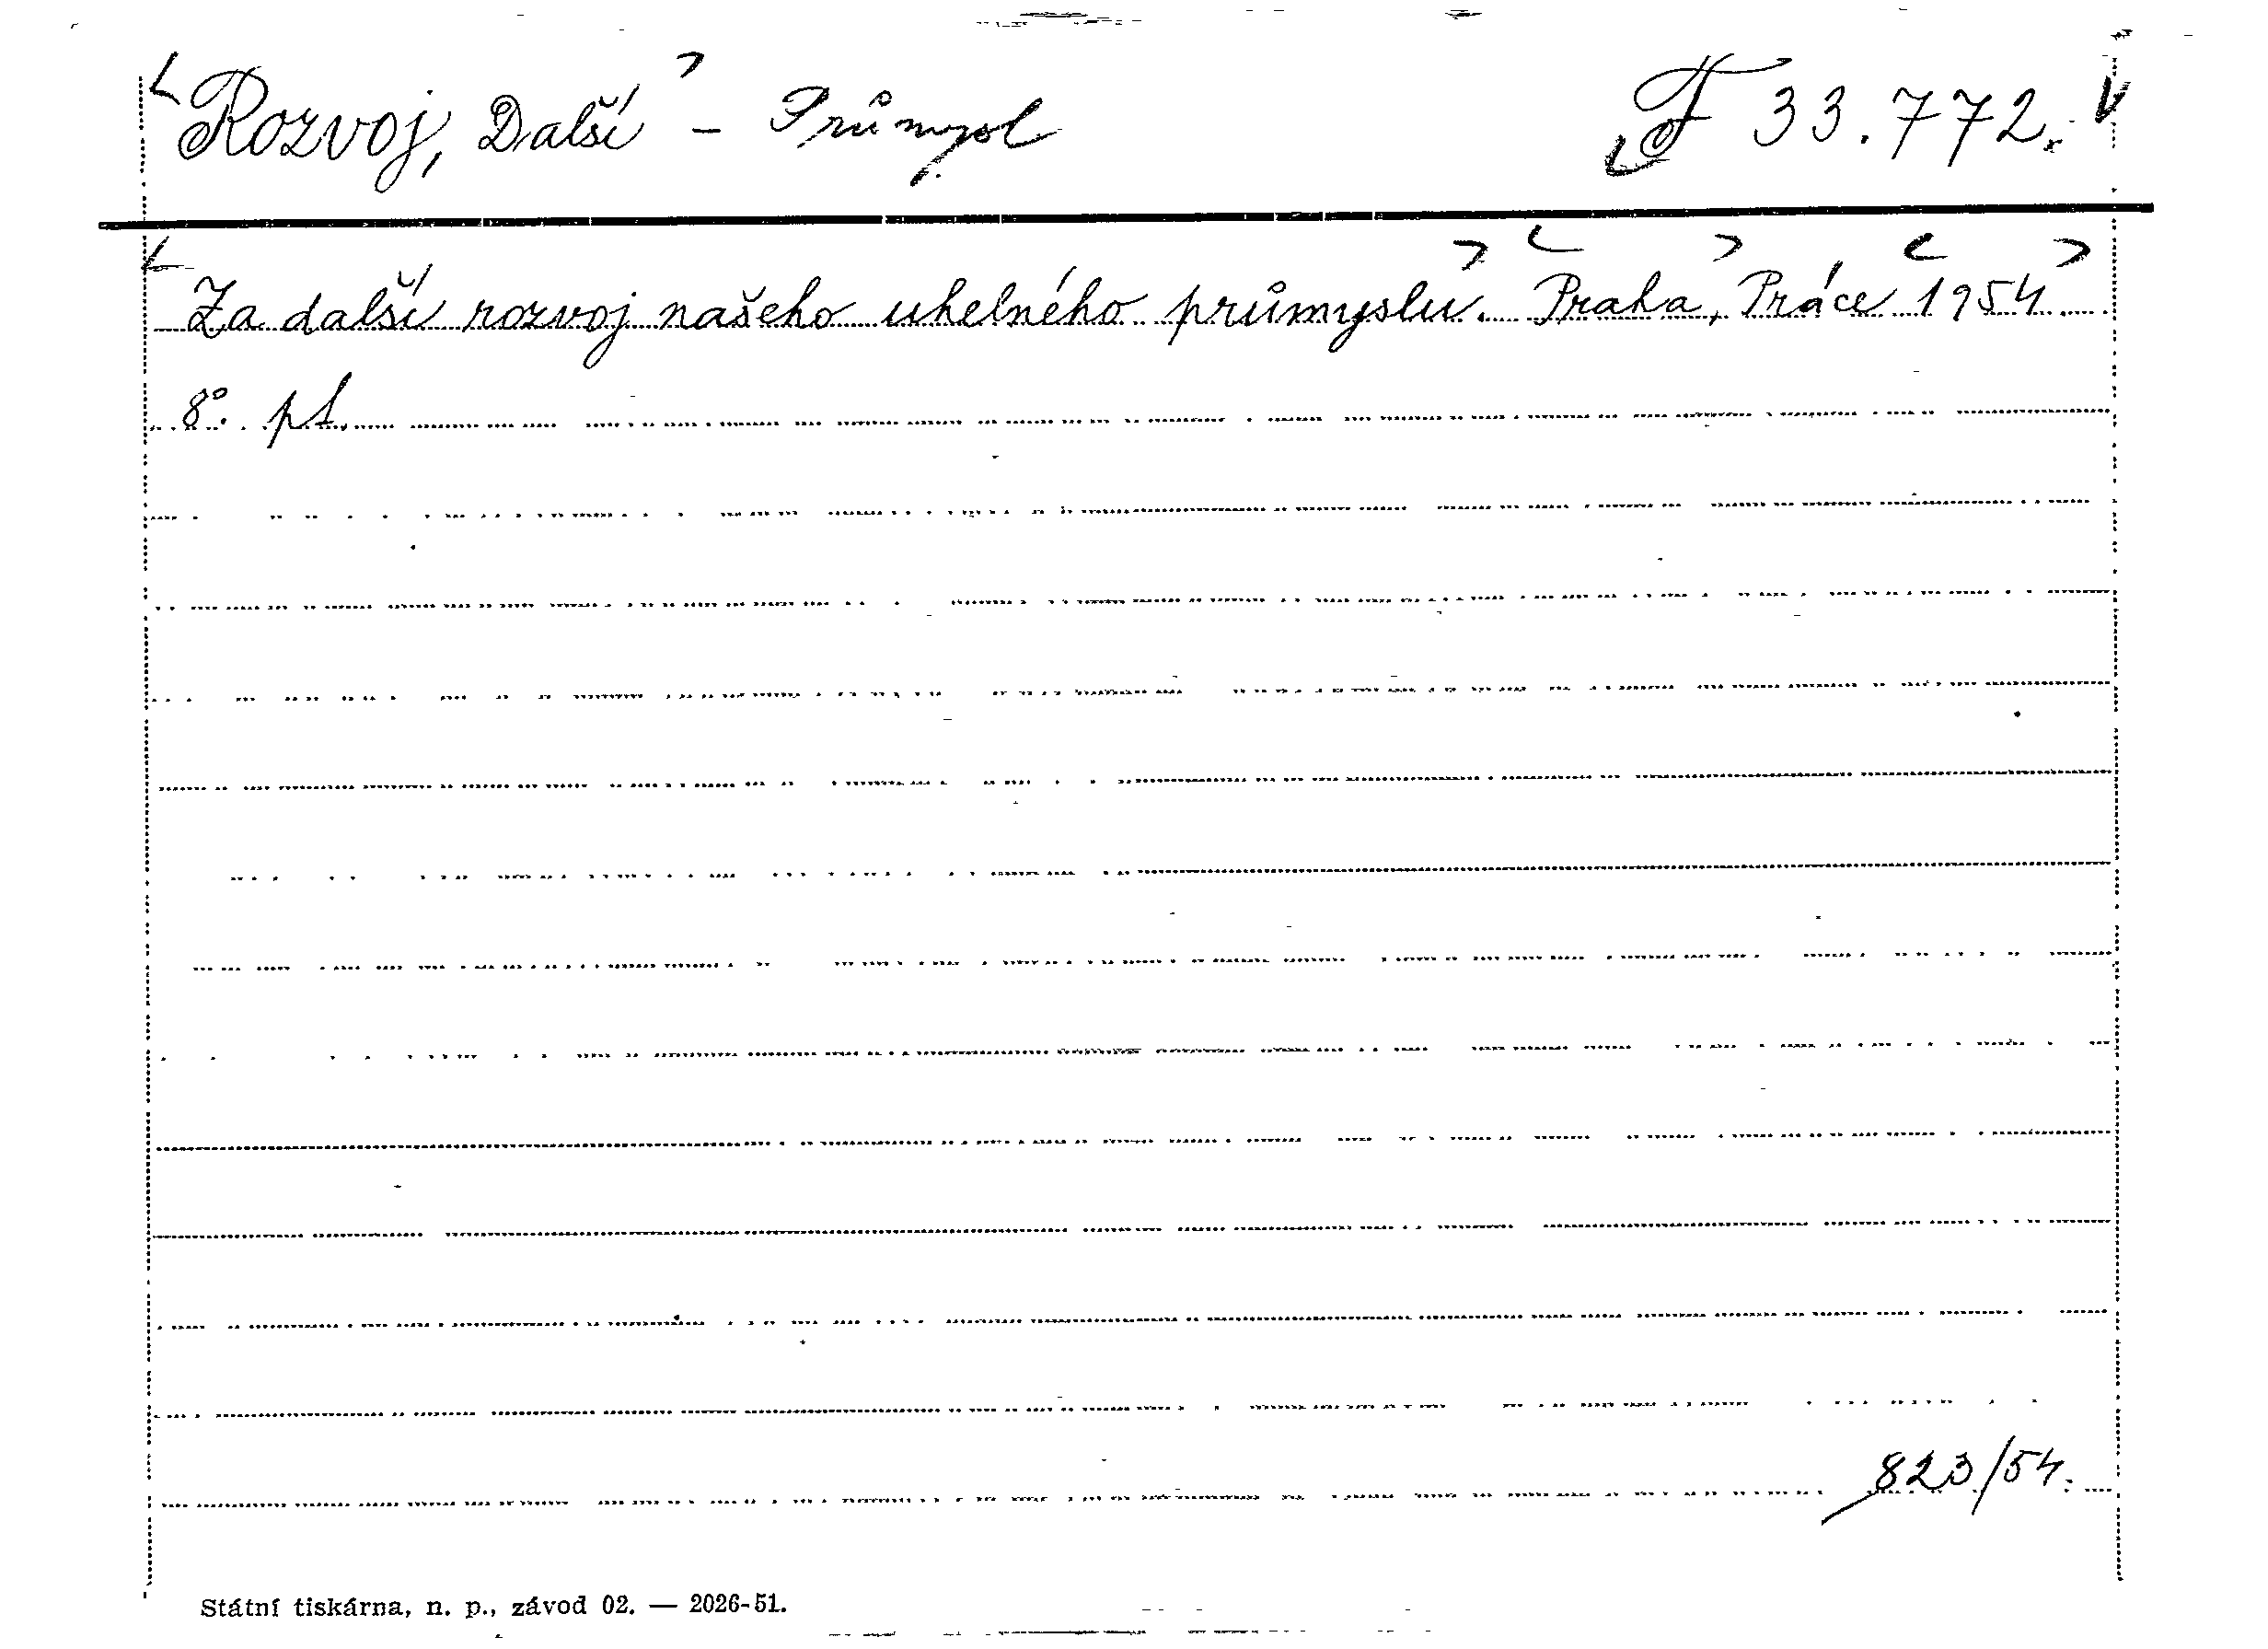 Rozvoj, Další - Průmysl F 33.772.
Za další rozvoj našeho uhelného průmyslu. Praha, Práce 1954.
8°. pl.
823/54.
Státní tiskárna, n. p., závod 02. — 2026-51.